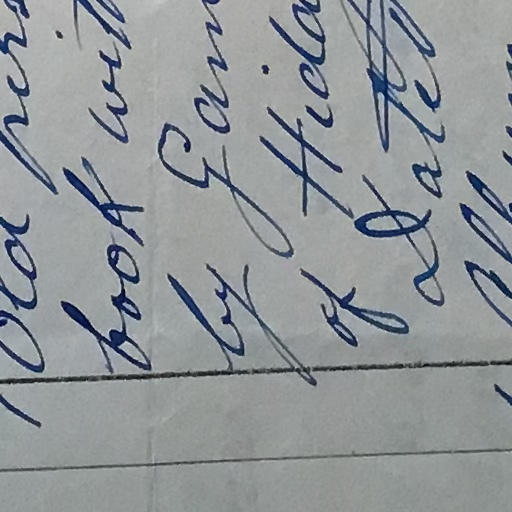 1 Old pers
book with
by Gam
of Hida
Dated
1 Album